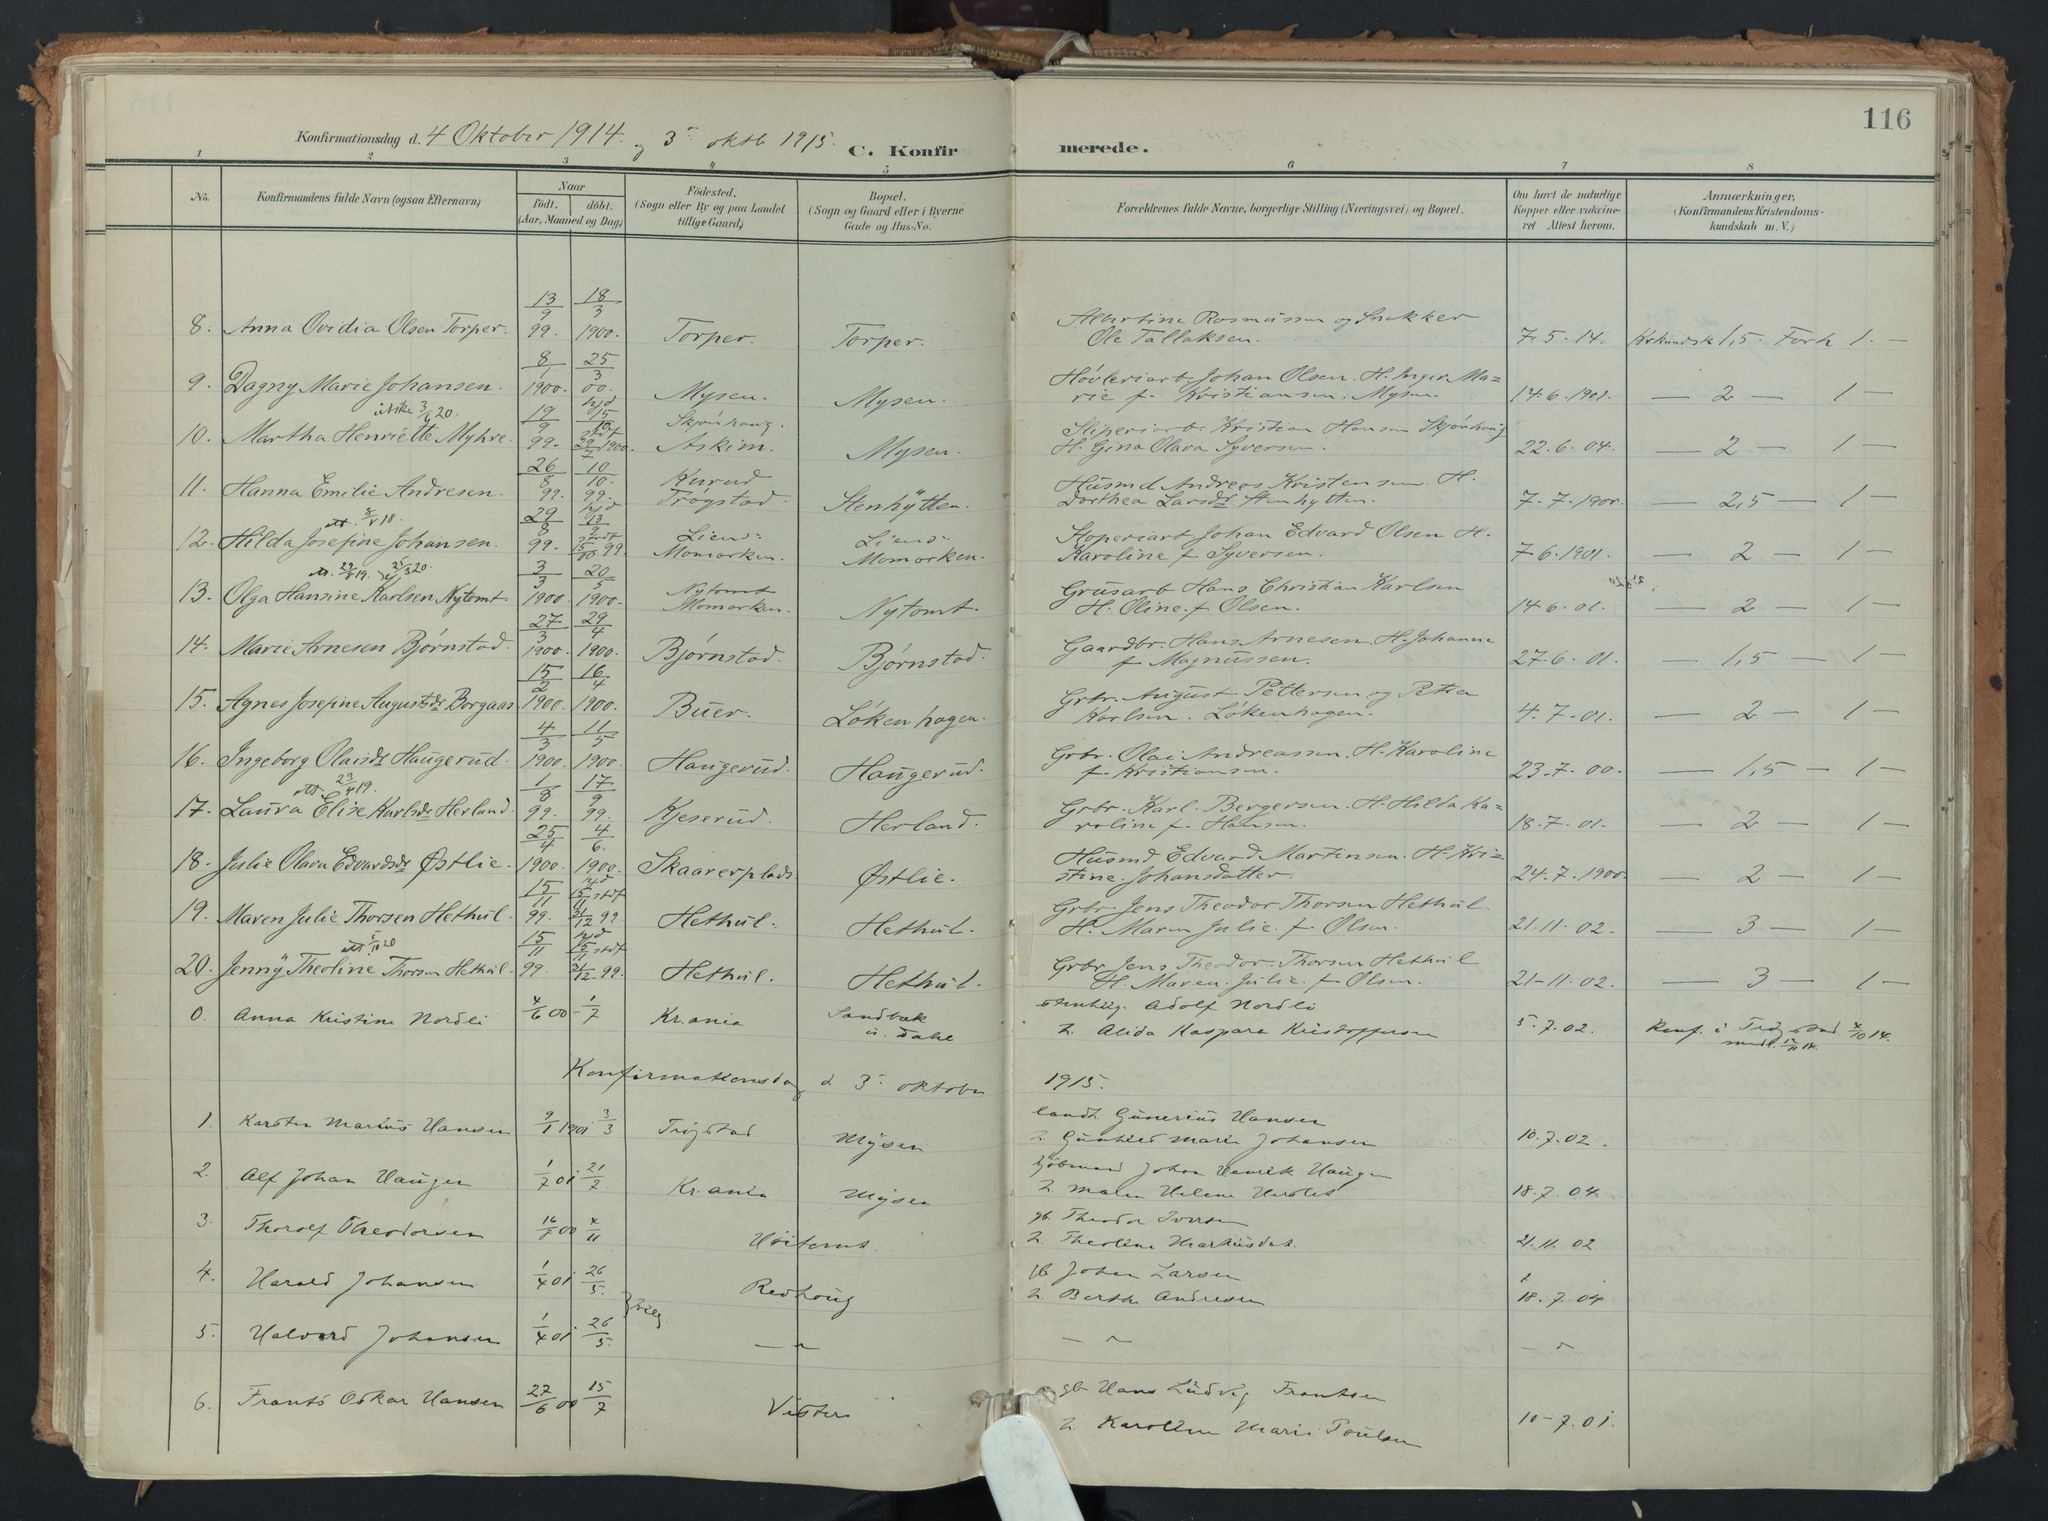 116
Konfirmationsdag d. 4 Oktober 1914. og 3 oktb 1915.
C. Konfirmerede.
1 2 3 4 5 6 7 8
No.
Konfirmandens fulde Navn (ogsaa Efternavn)
Naar
födt. döbt.
(Aar, Maaned og Dag)
Födested.
(Sogn eller By og paa Landet
tillige Gaard)
Bopæl.
(Sogn og Gaard eller i Byerne
Gade og Hus-No.
Forældrenes fulde Navne, borgerlige Stilling (Næringsvei) og Bopæl.
Om havt de naturlige
Kopper eller vaccine-
ret Attest herom.
Anmærkninger,
(Konfirmandens Kristendoms-
kundskab m. V.)
8. Anna Ovidia Olsen Torper. 13/9 99. 18/3 1900. Torper. Torper.
Albertine Rasmussen og Snekker
Ole Tallaksen. 7-5-14. Krkundsk 1,5. Forh 1. —
9. Dagny Marie Johansen. 8/1 1900. 25/3 00. Mysen. Mysen.
Høvleriarb. Johan Olsen. H. Inger Ma=
rie f. Kristiansen. Mysen. 14-6-1901. — 2 — 1 —
10. Martha Henriette Myhre. 19/9 99. Askim. Mysen.
Sliperiarb Kristian Hansen Skjønhaug
H. Gina Olava Syversen. 22-6-04. — 2 — 1 —
11. Hanna Emilie Andresen. 26/8 99. 10/10. 99. Trøgstad. Stenhytten.
Husmd Andreas Kristensen. H.
Dorthea Larsdr Stenhytten. 7-7-1900. — 2,5 — 1 —
12. Hilda Josefine Johansen. 29/8 99. Liens- Momarken. Liens- Momarken.
Johan Edvard Olsen H.
Karoline f. Syversen. 7-6-1901. — 2 — 1 —
13. Olga Hansine Karlsen Nytomt 3/3 1900. 20/5 1900. Nytomt Momarken. Nytomt.
Grusarb Hans Christian Karlsen
H. Oline f. Olsen. 14-6-01. — 2 — 1 —
14. Marie Arnesen Bjørnstad. 27/3 1900. 29/4 1900. Bjørnstad. Bjørnstad.
Gaardbr. Hans Arnesen. H. Johanne
f. Magnussen. 27-6-01. — 1,5 — 1 —
15. Agnes Josefine Augustdr Borgaas 15/2 1900. 16/4 1900. Buer. Løkenhagen.
Grbr. August Pettersen og Petra
Karlsen. Løkenhagen. 4-7-01. — 2 — 1 —
16. Ingeborg Olaisdr Haugerud. 4/3 1900. 11/5 1900. Haugerud. Haugerud.
Grbr. Olai Andreassen. H. Karoline
f. Kristiansen. 23-7-00. — 1,5 — 1 —
17. Laura Elise Karlsdr Herland. 1/8 99. 17/9 99. Kjeserud. Herland.
Grbr. Karl Bergersen. H. Hilda Ka=
roline f. Hansen. 18-7-01. — 2 — 1 —
18. Julie Olava Edvardsdr Østlie. 25/4 1900. 4/6. 1900. Skaarerplads. Østlie.
Husmd Edvard Martinsen. H. Kri=
stine Johansdatter. 24-7-1900. — 2 — 1 —
19. Maren Julie Thorsen Hethul. 15/11 99. Hethul. Hethul.
Grbr. Jens Theodor Thorsen Hethul.
H. Maren Julie f. Olsen. 21-11-02. — 3 — 1 —
20. Jenny Theoline Thorsen Hethul. 15/11 99. Hethul. Hethul.
Grbr. Jens Theodor Thorsen Hethul
H. Maren Julie f. Olsen. 21-11-02. — 3 — 1 —
0. Anna Kristine Nordli 4/6 00 1/7 Kr.ania Sandbæk u. Dahl
Adolf Nordli
Alida Kaspara Kristoffersen 5.7.02. Konf. i Trøgstad 4/10 14.
Konfirmationsdag d 3 oktober 1915.
1. Karsten Marius Hansen 9/1 1901 3/3 Trøgstad Mysen
landh. Gunerius Hansen
Gunhild Marie Johansen 10.7.02.
2. Alf Johan Haugen 1/7 01 21/7 Kr.ania Mysen
Johan Henrik Haugen
Malen Helene 18.7.04
3. Thorolf Theodorsen 16/7 00 4/11
gb Theodor Iversen
Theoline 21.11.02
4. Harald Johansen 1/4 01 26/5. Redhoug
gb Johan Larsen
Berthe Andresen 18.7.04
5. Halvard Johansen 1/4 01 26/5. — „
— „ — „
6. Frants Oskar Hansen 27/6 00 15/7
gb Hans Ludvig Frantsen
Karoline Marie Poulsen 10-7.01.